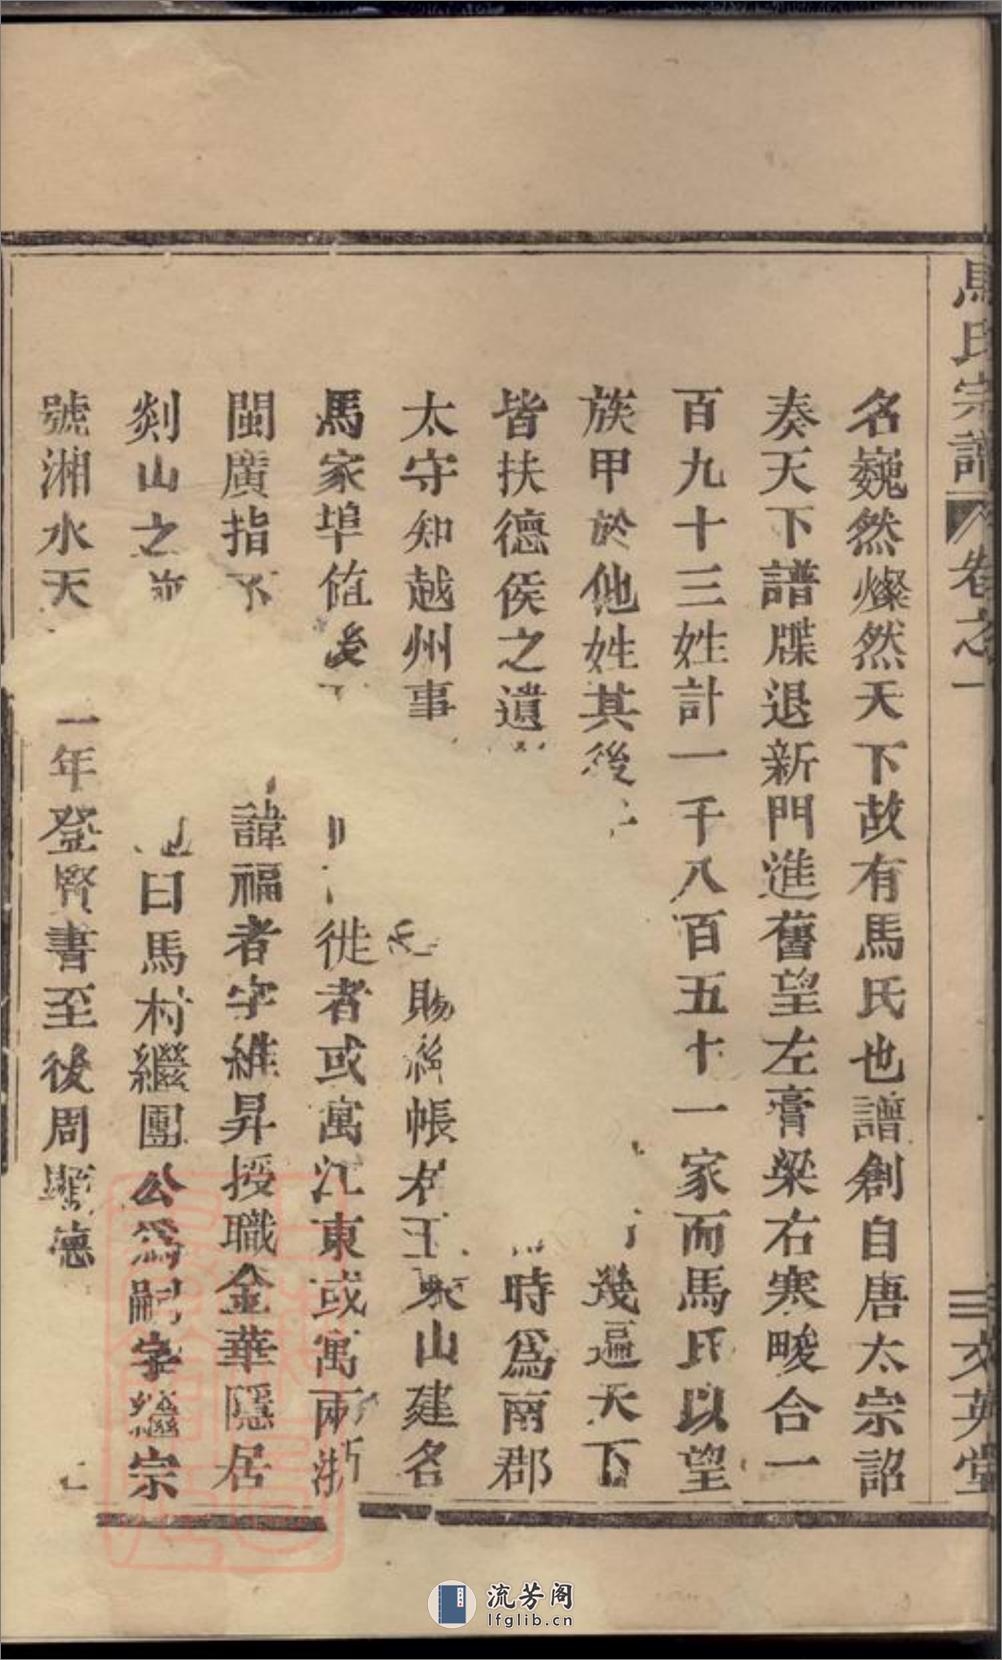 馬氏宗譜 卷之一 三 文英堂
名巍然燦然天下故有馬氏也譜創自唐太宗詔
奏天下譜牒退新門進舊望左膏粱右寒畯合一
百九十三姓計一千八百五十一家而馬氏以望
族甲於他姓其後 幾遍天下
皆扶德侯之遺 時爲南郡
太守知越州事 賜 帳 東山建名
馬家埠值後 徙者或寓江東或寓兩浙
閩廣指不 諱福者字維昇授職金華隱居
剡山之 曰馬村繼團公爲嗣字繼宗
號湘水天 一年登賢書至後周顯德
流芳阁
lfglib.cn